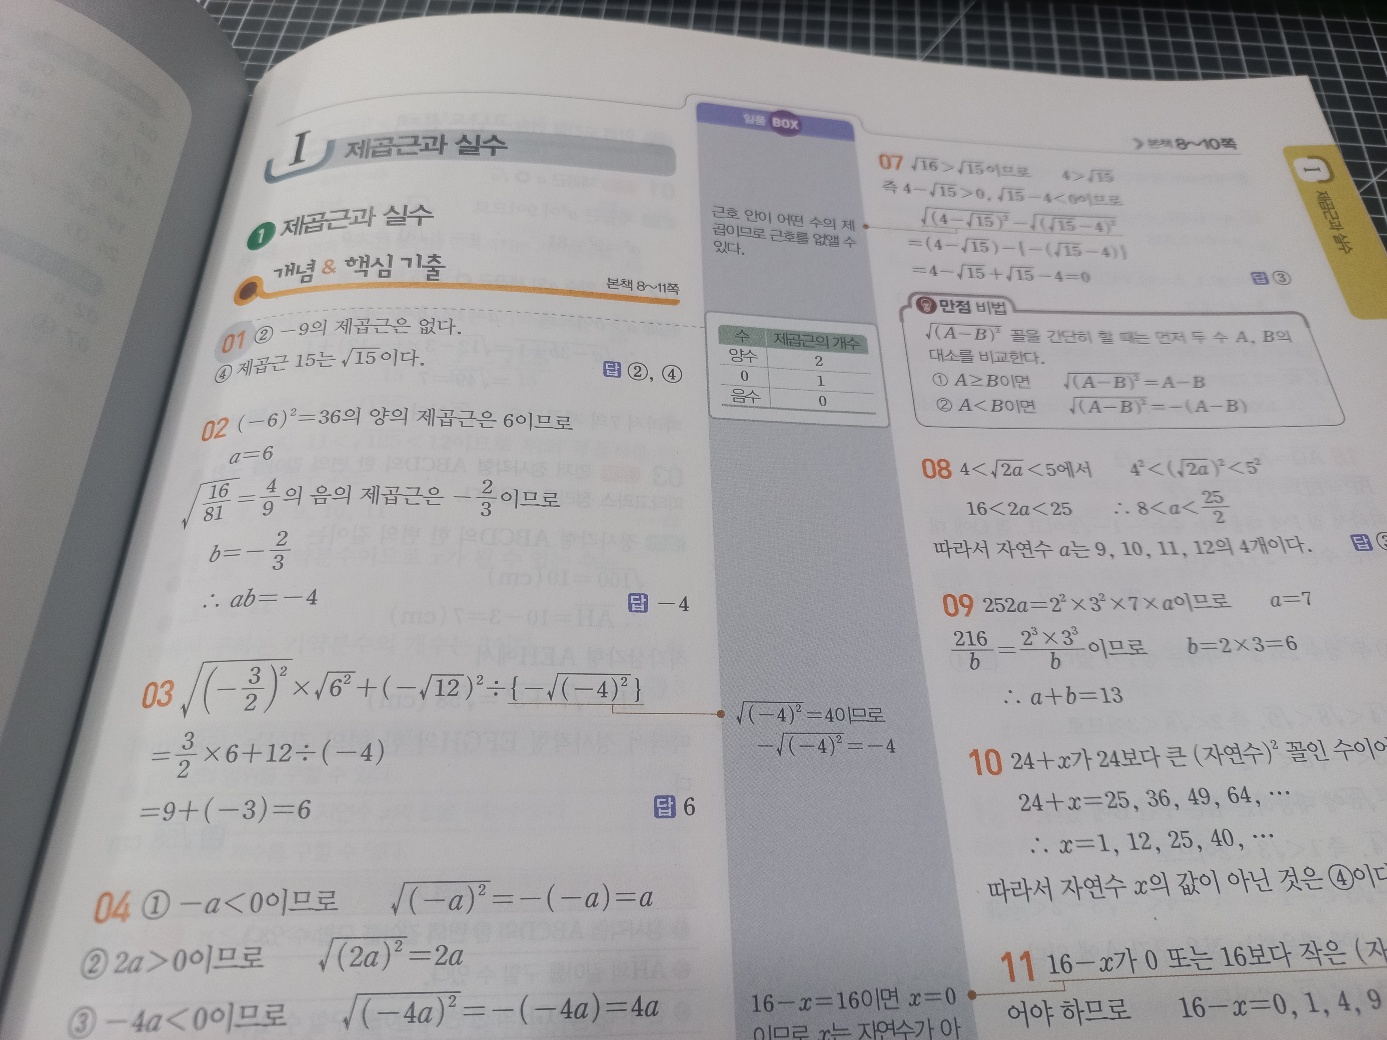 I 제곱근과 실수
1 제곱근과 실수
개념 & 핵심 기출
본책 8~11쪽
01 ② −9의 제곱근은 없다.
④ 제곱근 15는 √15이다.
답 ②, ④
02 (−6)²=36의 양의 제곱근은 6이므로
a=6
√(16/81)=4/9의 음의 제곱근은 −2/3이므로
b=−2/3
∴ ab=−4
답 −4
03 √((−3/2)²)×√(6²)+(−√12)²÷{−√((−4)²)}
=3/2×6+12÷(−4)
=9+(−3)=6
답 6
04 ① −a<0이므로 √((−a)²)=−(−a)=a
② 2a>0이므로 √((2a)²)=2a
③ −4a<0이므로 √((−4a)²)=−(−4a)=4a
일품 BOX
근호 안이 어떤 수의 제
곱이므로 근호를 없앨 수
있다.
수 제곱근의 개수
양수 2
0 1
음수 0
√((−4)²)=4이므로
−√((−4)²)=−4
16−x=16이면 x=0
이므로 x는 자연수가 아
본책 8~10쪽
07 √16>√15이므로 4>√15
즉 4−√15>0, √15−4<0이므로
√((4−√15)²)−√((√15−4)²)
=(4−√15)−{−(√15−4)}
=4−√15+√15−4=0
답 ③
만점 비법
√((A−B)²) 꼴을 간단히 할 때는 먼저 두 수 A, B의
대소를 비교한다.
① A≥B이면 √((A−B)²)=A−B
② A<B이면 √((A−B)²)=−(A−B)
08 4<√(2a)<5에서 4²<(√(2a))²<5²
16<2a<25 ∴ 8<a<25/2
따라서 자연수 a는 9, 10, 11, 12의 4개이다.
답
09 252a=2²×3²×7×a이므로 a=7
216/b=2³×3³/b이므로 b=2×3=6
∴ a+b=13
10 24+x가 24보다 큰 (자연수)² 꼴인 수이어
24+x=25, 36, 49, 64, ⋯
∴ x=1, 12, 25, 40, ⋯
따라서 자연수 x의 값이 아닌 것은 ④이다
11 16−x가 0 또는 16보다 작은 (자
어야 하므로 16−x=0, 1, 4, 9
I
제곱근과 실수